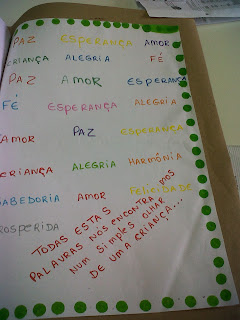 PAZ ESPERANÇA AMOR
CRIANÇA ALEGRIA FÉ
PAZ AMOR ESPERANÇA
FÉ ESPERANÇA ALEGRIA
AMOR PAZ ESPERANÇA
CRIANÇA ALEGRIA HARMONIA
SABEDORIA AMOR FELICIDADE
PROSPERIDA
TODAS ESTAS
PALAVRAS NÓS ENCONTRAMOS
NUM SIMPLES OLHAR
DE UMA CRIANÇA...